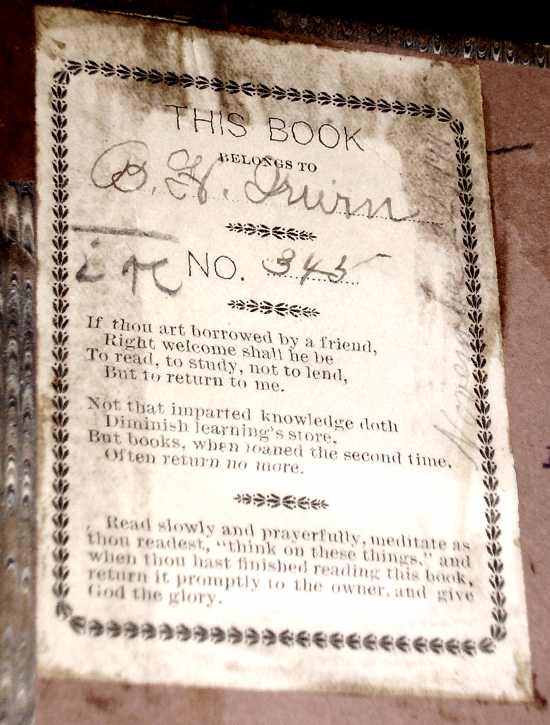 THIS BOOK
BELONGS TO
B. H. Irwin
NO. 345
If thou art borrowed by a friend,
Right welcome shall he be
To read, to study, not to lend,
But to return to me.
Not that imparted knowledge doth
Diminish learning's store,
But books, when loaned the second time,
Often return no more.
Read slowly and prayerfully, meditate as
thou readest, "think on these things," and
when thou hast finished reading this book,
return it promptly to the owner, and give
God the glory.